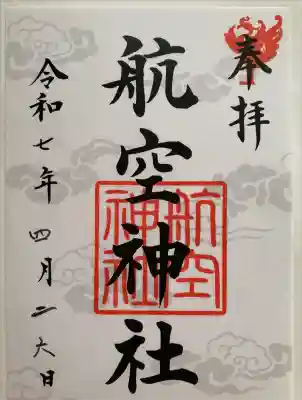 奉拝
航空神社
航空
神社
令和七年 四月二六日